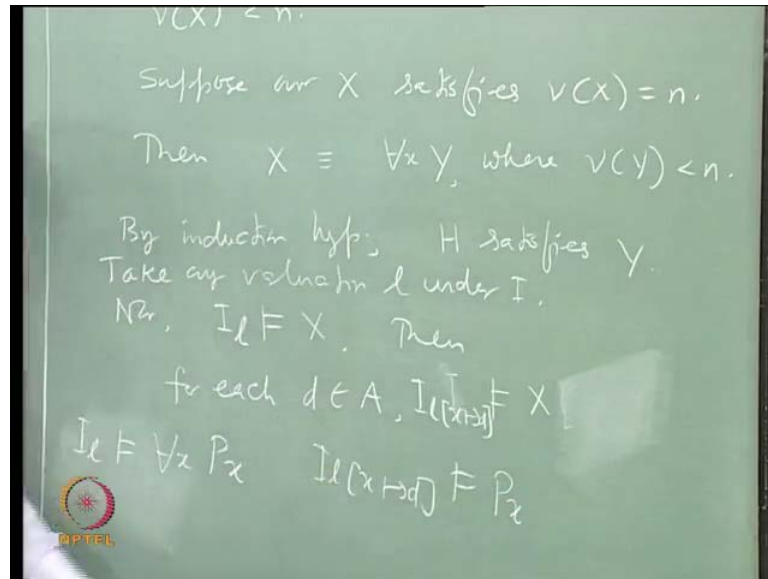 v(X) < n.
Suppose our X satisfies v(X) = n.
Then X ≡ ∀x Y, where v(Y) < n.
By induction hyp, H satisfies Y.
Take any valuation l under I.
Now, I_l ⊨ X. Then
for each d ∈ A, I_l[x↦d] ⊨ X
I_l ⊨ ∀x P_x I_l[x↦d] ⊨ P_x
NPTEL